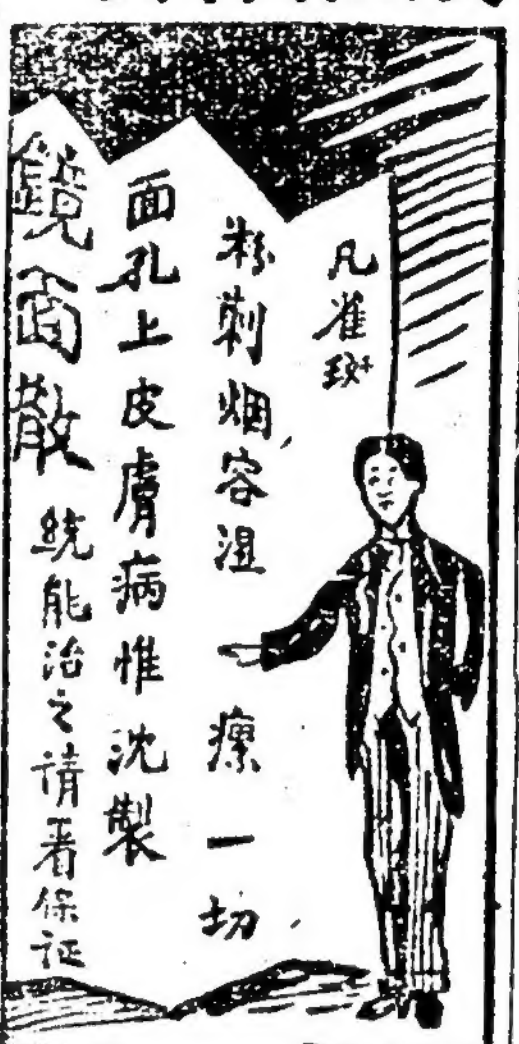 凡雀斑
粉刺烟容湿瘰一切
面孔上皮膚病惟沈製
鏡面散统能治之请看保证